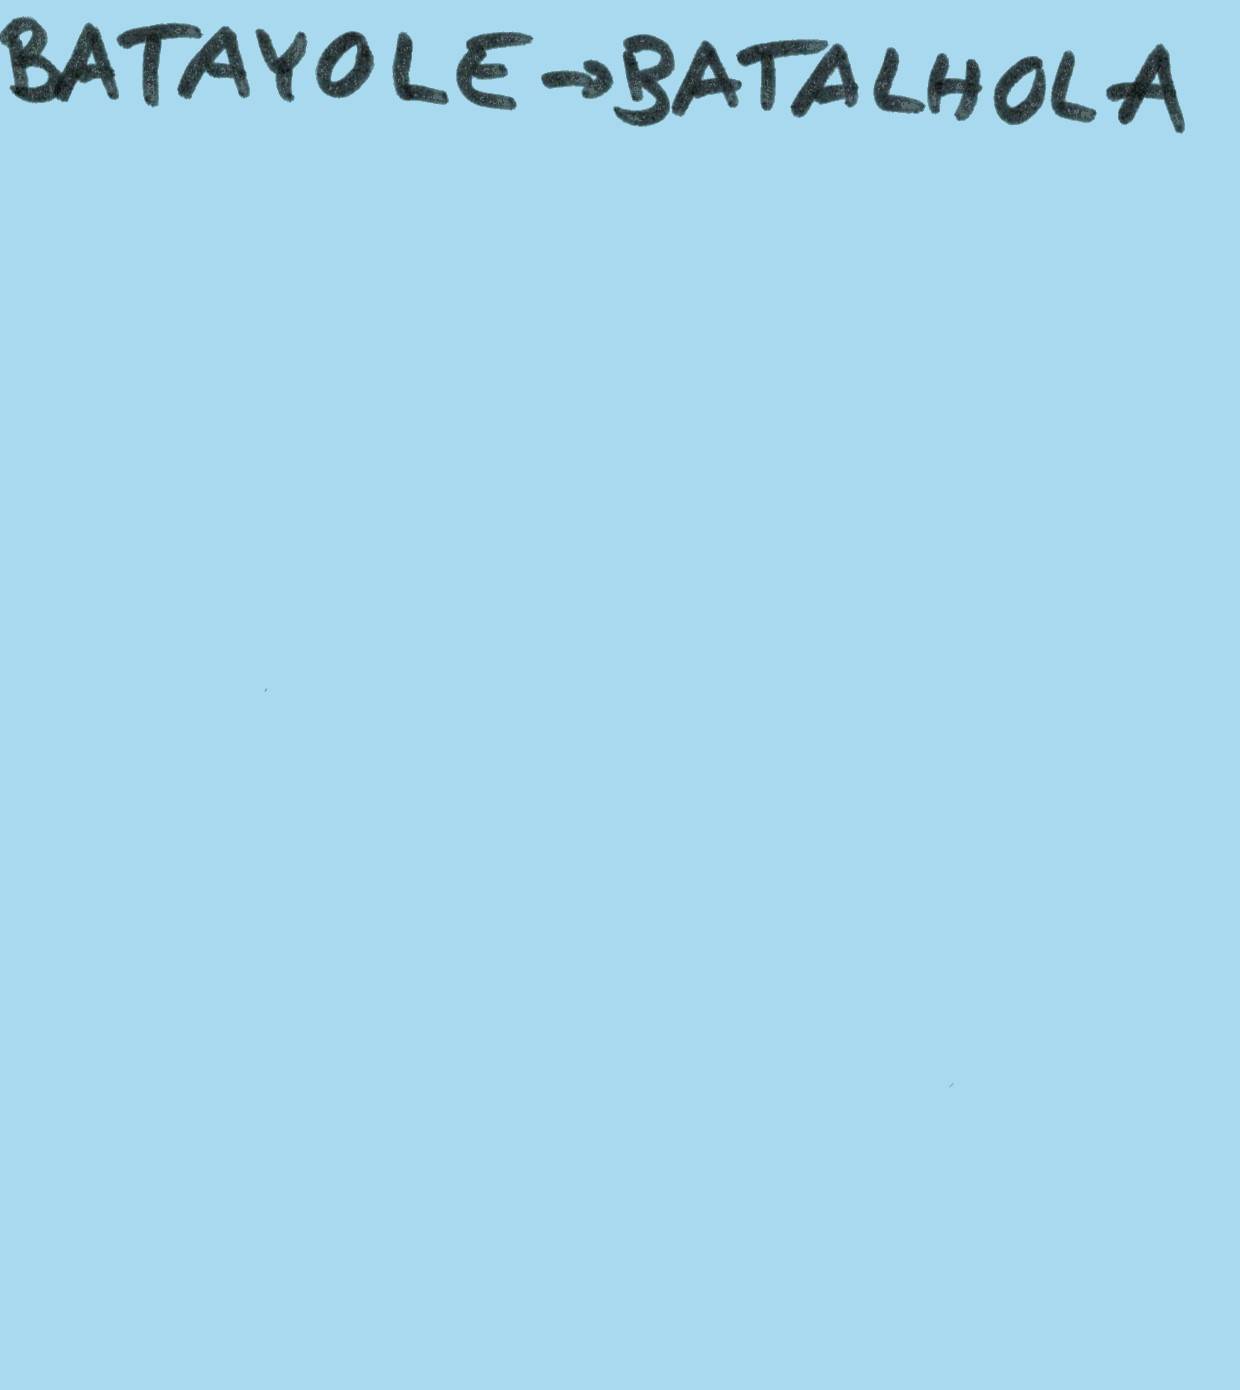 BATAYOLE → BATALHOLA